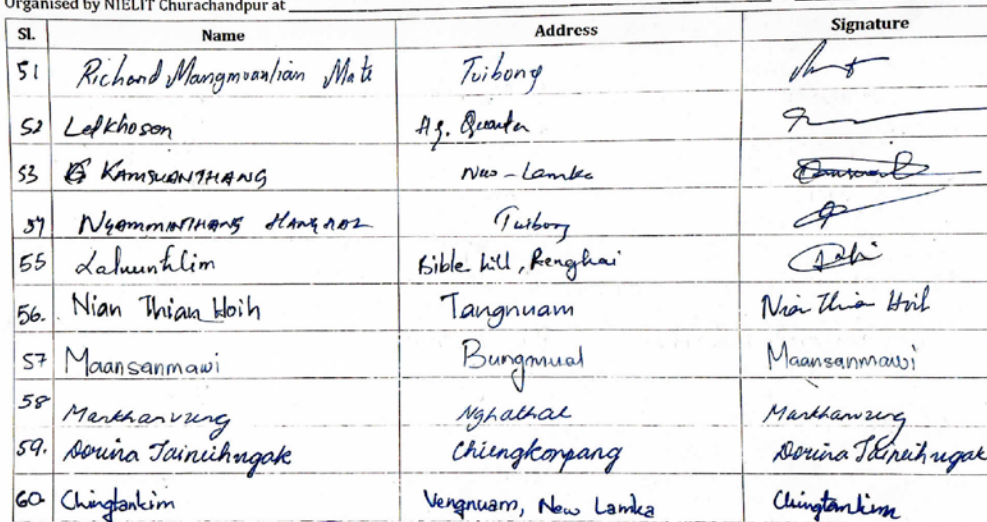 Organised by NIELIT Churachandpur at
Sl. Name Address Signature
51 Richard Mangmuanlian Mate Tuibong
52 Lelkhoson Ag. Quarter
53 KAMSUANTHANG New-Lamka
54 NGAMMINTHANG HANGZAL Tuibong
55 Lalmunhlim Bible hill, Rengkai
56. Nian Thian Hoih Tangnuam Nian Thian Hoih
57 Maansanmawi Bungmual Maansanmawi
58 Mankhanvung Nghathal Mankhanvung
59. Dorina Taineihngak Chiengkonpang Dorina Taineihngak
60 Chingtankim Vengnuam, New Lamka Chingtankim